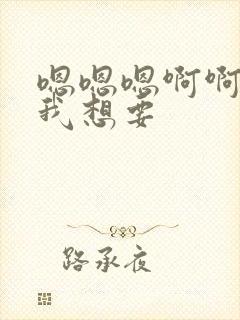 嗯嗯嗯啊啊
我想要
路承夜